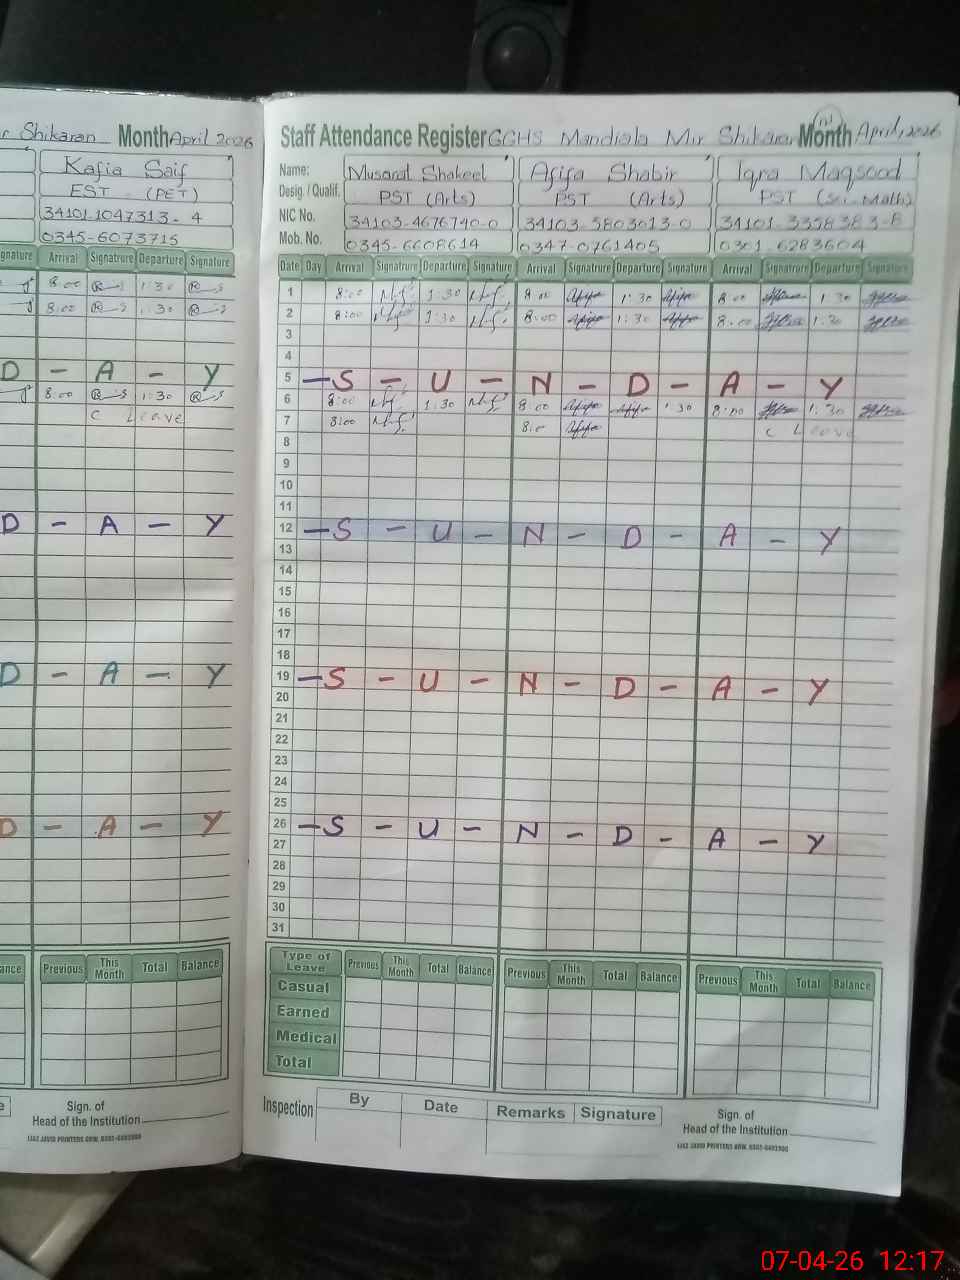 Shikaran Month April 2026
Kafia Saif
EST (PET)
34101-1047313-4
0345-6073715
Arrival Signatrure Departure Signatrure
8:00 1:30
8:00 1:30
D - A - Y
8:00 1:30
C Leave
D - A - Y
D - A - Y
D - A - Y
Previous This Month Total Balance
Sign. of
Head of the Institution
Staff Attendance Register GGHS Mandiala Mir Shikaran Month April, 2026
Name: Musarat Shakeel Afifa Shabir Iqra Maqsood
Desig / Qualif. PST (Arts) PST (Arts) PST (Sci. Math)
NIC No. 34103-4676740-0 34103-5803013-0 34101-3358383-8
Mob. No. 0345-6608614 0347-0761405 0301-6283604
Date Day Arrival Signatrure Departure Signatrure Arrival Signatrure Departure Signatrure Arrival Signatrure Departure Signatrure
1 8:00 1:30 8:00 1:30 8:00 1:30
2 8:00 1:30 8:00 1:30 8:00 1:30
3
4
5 - S - U - N - D - A - Y
6 8:00 1:30 8:00 1:30 8:00 1:30
7 8:00 8:0 C Leave
8
9
10
11
12 - S - U - N - D - A - Y
13
14
15
16
17
18
19 - S - U - N - D - A - Y
20
21
22
23
24
25
26 - S - U - N - D - A - Y
27
28
29
30
31
Type of Leave Previous This Month Total Balance Previous This Month Total Balance Previous This Month Total Balance
Casual
Earned
Medical
Total
Inspection By Date Remarks Signature
Sign. of
Head of the Institution
07-04-26 12:17